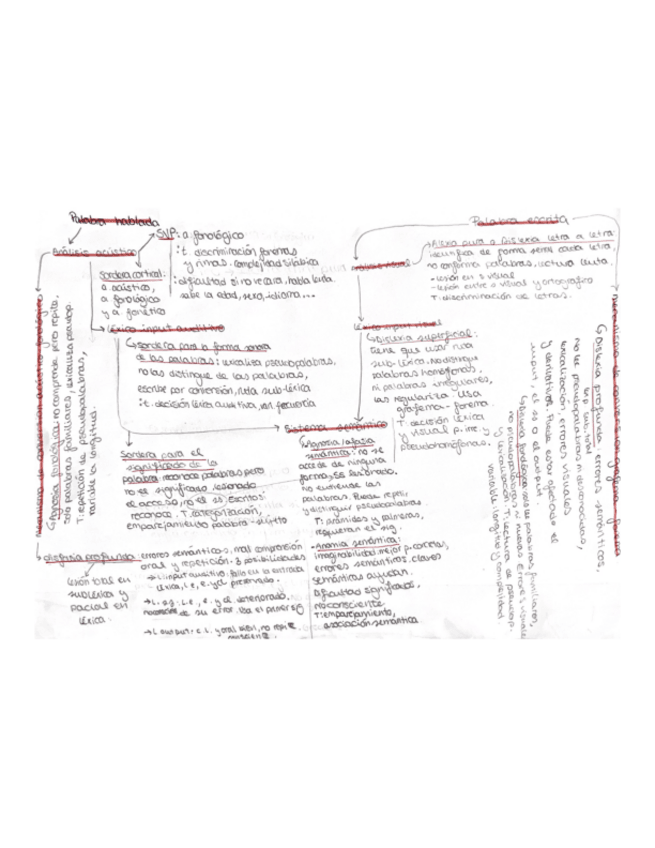 Palabra hablada
SVP: a. fonológico
:t. discriminación fonemas
y rimas. complejidad silábica
:dificultad si no vecara, habla lenta.
sabe la edad, sexo, idioma...
Análisis acústico
Sordera cortical:
a acústico,
a fonológico
y a. fonético
Léxico input auditivo
Sordera para la forma sonora
de las palabras: lexicaliza pseudopalabras,
no las distingue de las palabras,
escribe por conversión, ruta sub-léxica
:t. decisión léxica auditiva, van. frecuencia
Sistema semántico
Sordera para el
significado de la
palabra: reconoce palabras pero
no el significado. lesionado
el acceso, no el ss. Escritas:
reconoce. T. categorización,
emparejamiento palabra-objeto
Mecanismo de conversión acústico fonológico
Agnosia fonológica: no comprende pero repite,
solo palabras familiares, lexicaliza pseudop.
T: repetición de pseudopalabras,
variable la longitud.
disfasia profunda: errores semánticos, mal comprensión
oral y repetición. 3 posibilidades
lesión total en
subléxica y
parcial en
léxica
→ L. input auditivo: fallo en la entrada
léxica, l.e, e. y cl. preservado.
de su error. Usa el primer
→ L output:
y oral bien, no repi
Agnosia/afasia
semántica: no se
accede de ninguna
forma, ss lesionado.
no entiende las
palabras. Puede repetir,
y distinguir pseudopalabras
T: pirámides y palmeras,
requieran el sig.
-Anomia semántica:
imaginabilidad mejor p. concretas,
errores semánticos. claves
semánticas ayudan.
dificultad significados,
no consciente
T: emparejamiento,
asociación semántica
Palabra escrita
→ Alexia pura o Dislexia letra a letra:
identifica de forma serial cada letra,
no conforma palabras. lectura lenta.
-lesión en s visual
-lesión entre a visual y ortográfico
T: discriminación de letras.
Análisis visual
Léxico input visual
Dislexia superficial:
Tiene que usar ruta
sub-léxica. No distingue
palabras homófonas
ni palabras irregulares,
las regulariza. Usa
grafema-fonema
T: decisión léxica
visual p. irre. y
pseudohomófonas.
Mecanismo de conversión grafema a fonema
Dislexia profunda: errores semánticos.
no lee pseudopalabras ni desconocidas,
lexicalización, errores visuales
y derivativos. Puede estar afectado el
input, el ss o el output.
Dislexia fonológica: solo lee palabras familiares,
no pseudopalabras ni nuevas. Errores visuales
y lexicalización. T: lectura de pseudop.
variable: longitud y complejidad